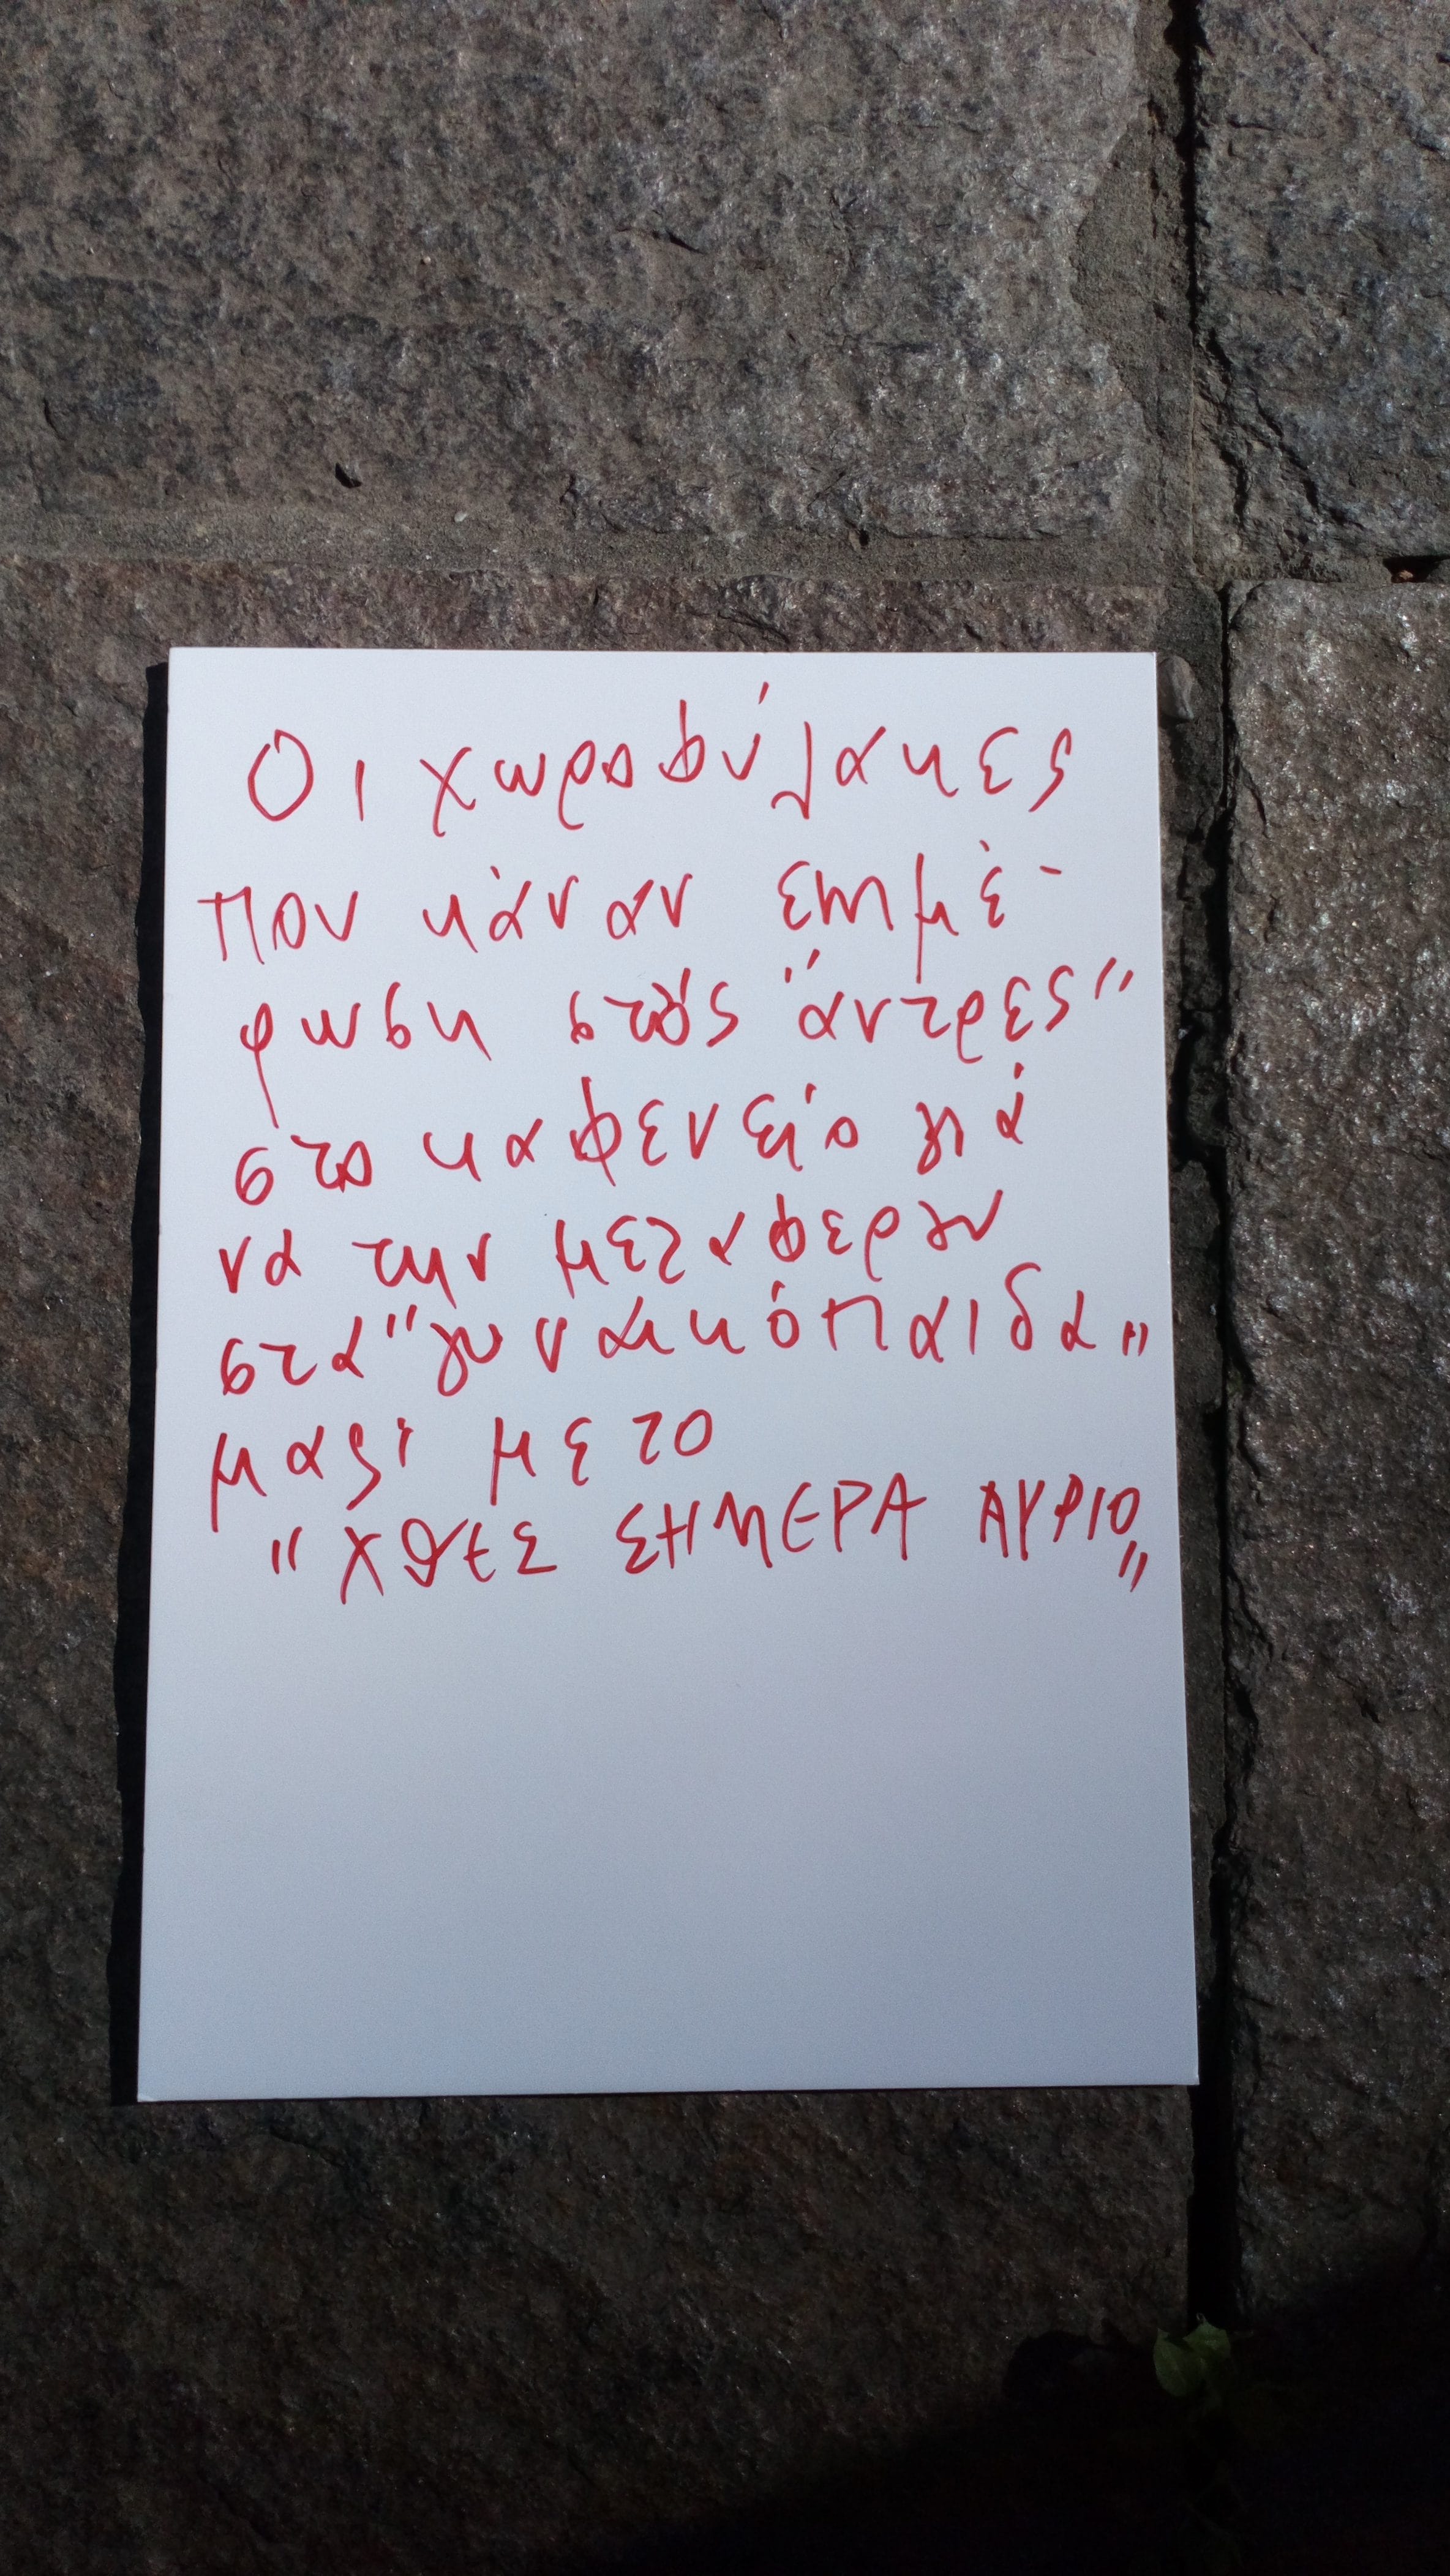 Οι χωροφύλακες
που κάναν επιμέ-
ρωση στους "άντρες"
στο καφενείο γιά
να την μεταφερουν
στα "γυναικόπαιδα"
μαζί με το
"ΧΘΕΣ ΣΗΜΕΡΑ ΑΥΡΙΟ"